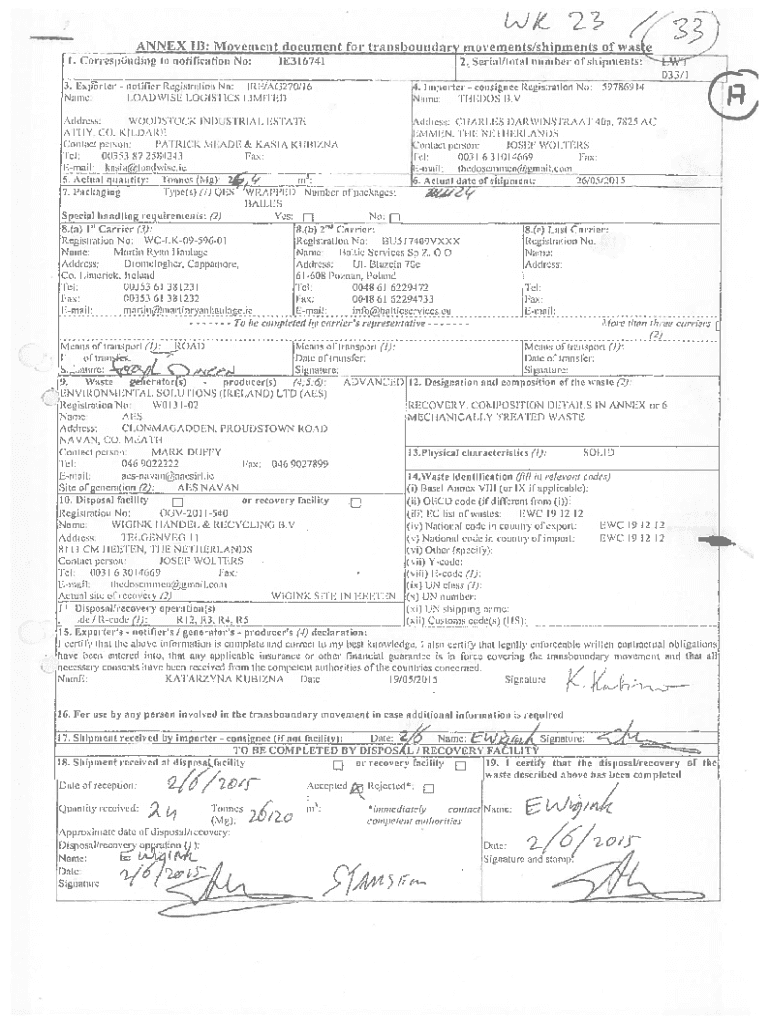 WK 23
33
A
ANNEX IB: Movement document for transboundary movements/shipments of waste
1. Corresponding to notification No: IE316741
2. Serial/total number of shipments: LWT
033/1
3. Exporter - notifier Registration No: IRE/AG270/16
Name: LOADWISE LOGISTICS LIMITED
Address: WOODSTOCK INDUSTRIAL ESTATE
ATHY, CO. KILDARE
Contact person: PATRICK MEADE & KASIA KUBIZNA
Tel: 00353 87 2584243 Fax:
E-mail: kasia@loadwise.ie
4. Importer - consignee Registration No: 59786914
Name: THEDOS B.V
Address: CHARLES DARWINSTRAAT 40a, 7825 AC
EMMEN, THE NETHERLANDS
Contact person: JOSEF WOLTERS
Tel: 0031 6 31014669 Fax:
E-mail: thedosemmen@gmail.com
5. Actual quantity: Tonnes (Mg): 26,4 m³:
6. Actual date of shipment: 26/05/2015
7. Packaging Type(s) (1) WRAPPED Number of packages: 24
BAILES
Special handling requirements: (2) Yes: No:
8.(a) 1st Carrier (3):
Registration No: WC-LK-09-596-01
Name: Martin Ryan Haulage
Address: Dromclogher, Cappamore,
Co. Limerick, Ireland
Tel: 00353 61 381231
Fax: 00353 61 381232
E-mail: martin@martinryanhaulage.ie
8.(b) 2nd Carrier:
Registration No: BU517409VXXX
Name: Baltic Services Sp Z. O O
Address: Ul. Bluszcza 70c
61-608 Poznan, Poland
Tel: 0048 61 6229472
Fax: 0048 61 62294733
E-mail: info@balticservices.eu
8.(c) Last Carrier:
Registration No:
Name:
Address:
Tel:
Fax:
E-mail:
- - - - - - - To be completed by carrier's representative - - - - - - -
More than three carriers
(2)
Means of transport (1): ROAD
of transfer:
Means of transport (1):
Date of transfer:
Signature:
Means of transport (1):
Date of transfer:
Signature:
9. Waste generator(s) - producer(s) (4,5,6): ADVANCED
ENVIRONMENTAL SOLUTIONS (IRELAND) LTD (AES)
Registration No: W0131-02
Name: AES
Address: CLONMAGADDEN, PROUDSTOWN ROAD
NAVAN, CO. MEATH
Contact person: MARK DUFFY
Tel: 046 9022222 Fax: 046 9027899
E-mail: aes-navan@aesirl.ie
Site of generation (2): AES NAVAN
12. Designation and composition of the waste (2):
RECOVERY. COMPOSITION DETAILS IN ANNEX nr 6
MECHANICALLY TREATED WASTE
13.Physical characteristics (1): SOLID
10. Disposal facility or recovery facility
Registration No: OGV-2011-540
Name: WIGINK HANDEL & RECYCLING B.V
Address: TELGENVEG 11
8111 CM HEETEN, THE NETHERLANDS
Contact person: JOSEF WOLTERS
Tel: 0031 6 3014669 Fax:
E-mail: thedosemmen@gmail.com
Actual site of recovery (2) WIGINK SITE IN EEETEN
11 Disposal/recovery operation(s)
de / R-code (1): R12, R3, R4, R5
14.Waste identification (fill in relevant codes)
(i) Basel Annex VIII (or IX if applicable):
(ii) OECD code (if different from (i)):
(iii) EC list of wastes: EWC 19 12 12
(iv) National code in country of export: EWC 19 12 12
(v) National code in country of import: EWC 19 12 12
(vi) Other (specify):
(vii) Y-code:
(viii) H-code (1):
(ix) UN class (1):
(x) UN number:
(xi) UN shipping name:
(xii) Customs code(s) (HS):
15. Exporter's - notifier's / generator's - producer's (4) declaration:
I certify that the above information is complete and correct to my best knowledge. I also certify that legally enforceable written contractual obligations
have been entered into, that any applicable insurance or other financial guarantee is in force covering the transboundary movement and that all
necessary consents have been received from the competent authorities of the countries concerned.
Name: KATARZYNA KUBIZNA Date 19/05/2015 Signature K. Kubizna
16. For use by any person involved in the transboundary movement in case additional information is required
17. Shipment received by importer - consignee (if not facility): Date: 2/6 Name: EWigink Signature:
TO BE COMPLETED BY DISPOSAL / RECOVERY FACILITY
18. Shipment received at disposal facility or recovery facility
Date of reception: 2/6/2015 Accepted Rejected*:
Quantity received: 24 Tonnes (Mg): 26120 m³: *immediately contact
competent authorities
Approximate date of disposal/recovery:
Disposal/recovery operation (1):
Name: E Wigink
Date: 2/6/2015
Signature
19. I certify that the disposal/recovery of the
waste described above has been completed
Name: EWigink
Date: 2/6/2015
Signature and stamp: